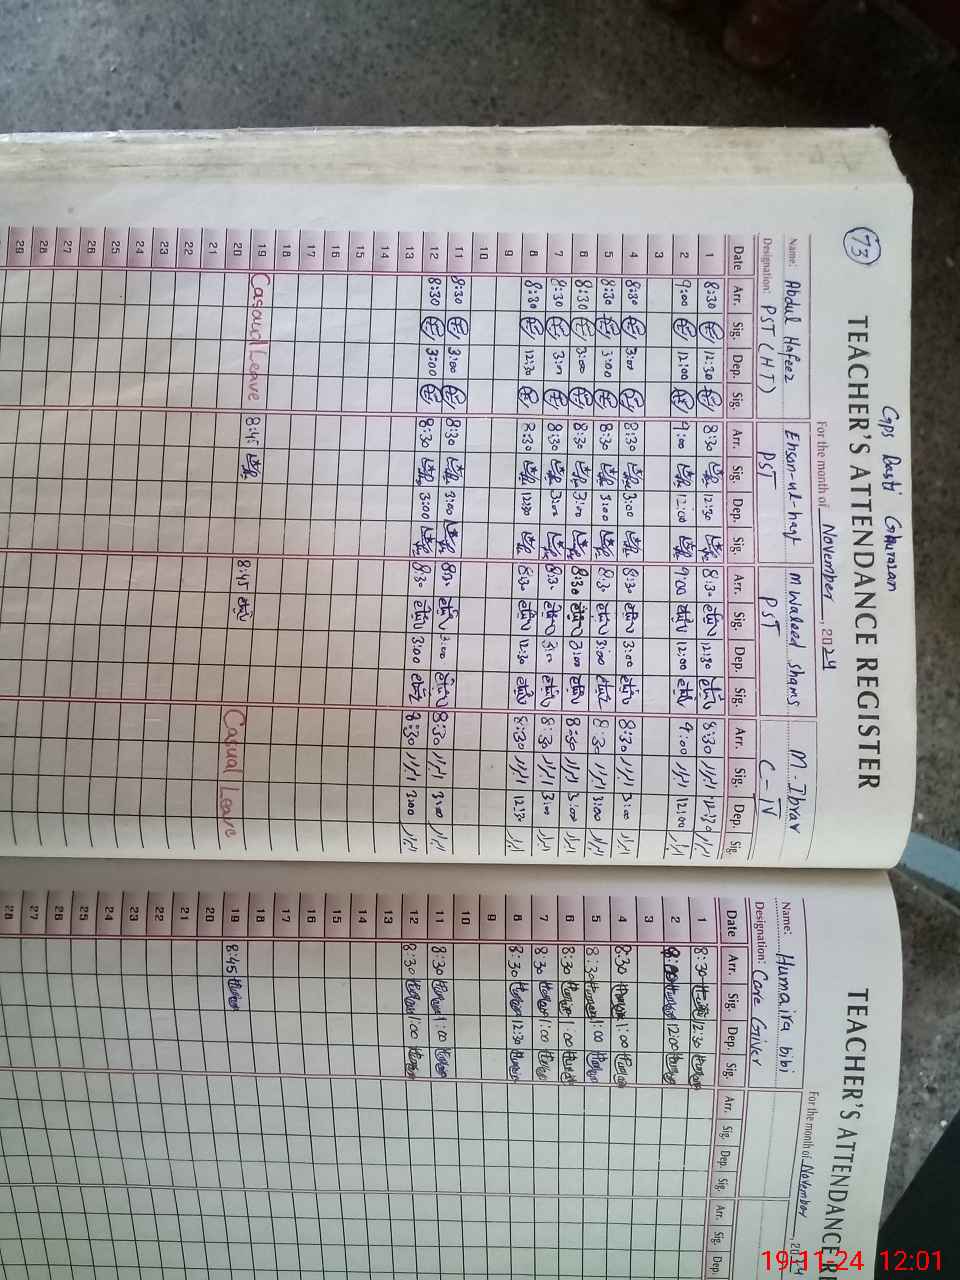 73
Gps Basti Ghurasan
TEACHER'S ATTENDANCE REGISTER
For the month of November, 2024
Name: Abdul Hafeez Ehsan-ul-haqt M Waleed Shams M. Ibrar
Designation: PST (HT) PST PST C-IV
Date Arr. Sig. Dep. Sig. Arr. Sig. Dep. Sig. Arr. Sig. Dep. Sig. Arr. Sig. Dep. Sig.
1 8:30 12:30 8:30 12:30 8:30 12:30 8:30 12:30
2 9:00 12:00 9:00 12:00 9:00 12:00 9:00 12:00
3
4 8:30 3:00 8:30 3:00 8:30 3:00 8:30 3:00
5 8:30 3:00 8:30 3:00 8:30 3:00 8:30 3:00
6 8:30 3:00 8:30 3:00 8:30 3:00 8:30 3:00
7 8:30 3:00 8:30 3:00 8:30 3:00 8:30 3:00
8 8:30 12:30 8:30 12:30 8:30 12:30 8:30 12:30
9
10
11 8:30 3:00 8:30 3:00 8:30 3:00 8:30 3:00
12 8:30 3:00 8:30 3:00 8:30 3:00 8:30 3:00
13
14
15
16
17
18
19 Casaual Leave 8:45 8:45 Casual Leave
20
21
22
23
24
25
26
27
28
29
TEACHER'S ATTENDANCE RE
For the month of November, 2024
Name: Humaira bibi
Designation: Care Giver
Date Arr. Sig. Dep. Sig. Arr. Sig. Dep. Sig. Arr. Sig. Dep.
1 8:30 12:30
2 12:00
3
4 8:30 1:00
5 8:30 1:00
6 8:30 1:00
7 8:30 1:00
8 8:30 12:30
9
10
11 8:30 1:00
12 8:30 1:00
13
14
15
16
17
18
19 8:45
20
21
22
23
24
25
26
27
28
19-11-24 12:01